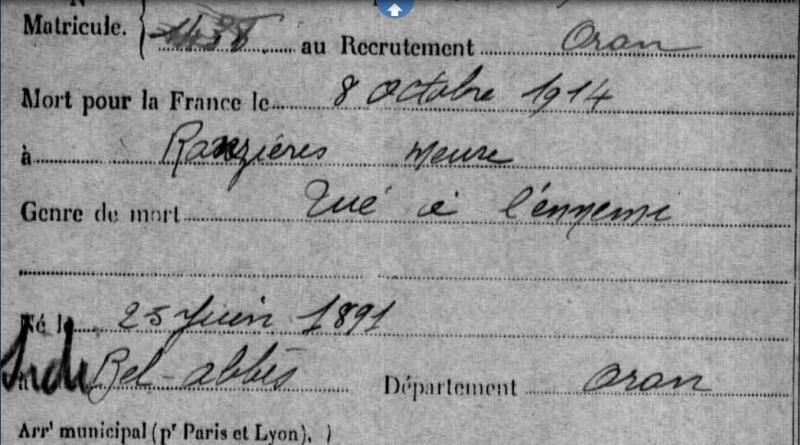 Matricule. 1438 au Recrutement Oran
Mort pour la France le 8 Octobre 1914
à Ranzières Meuse
Genre de mort Tué à l'ennemi
Né le 25 Juin 1891
Sidi Bel-abbès Département Oran
Arrt municipal (pr Paris et Lyon),